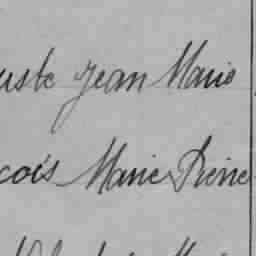 uste Jean Marie
cois Marie Pierre